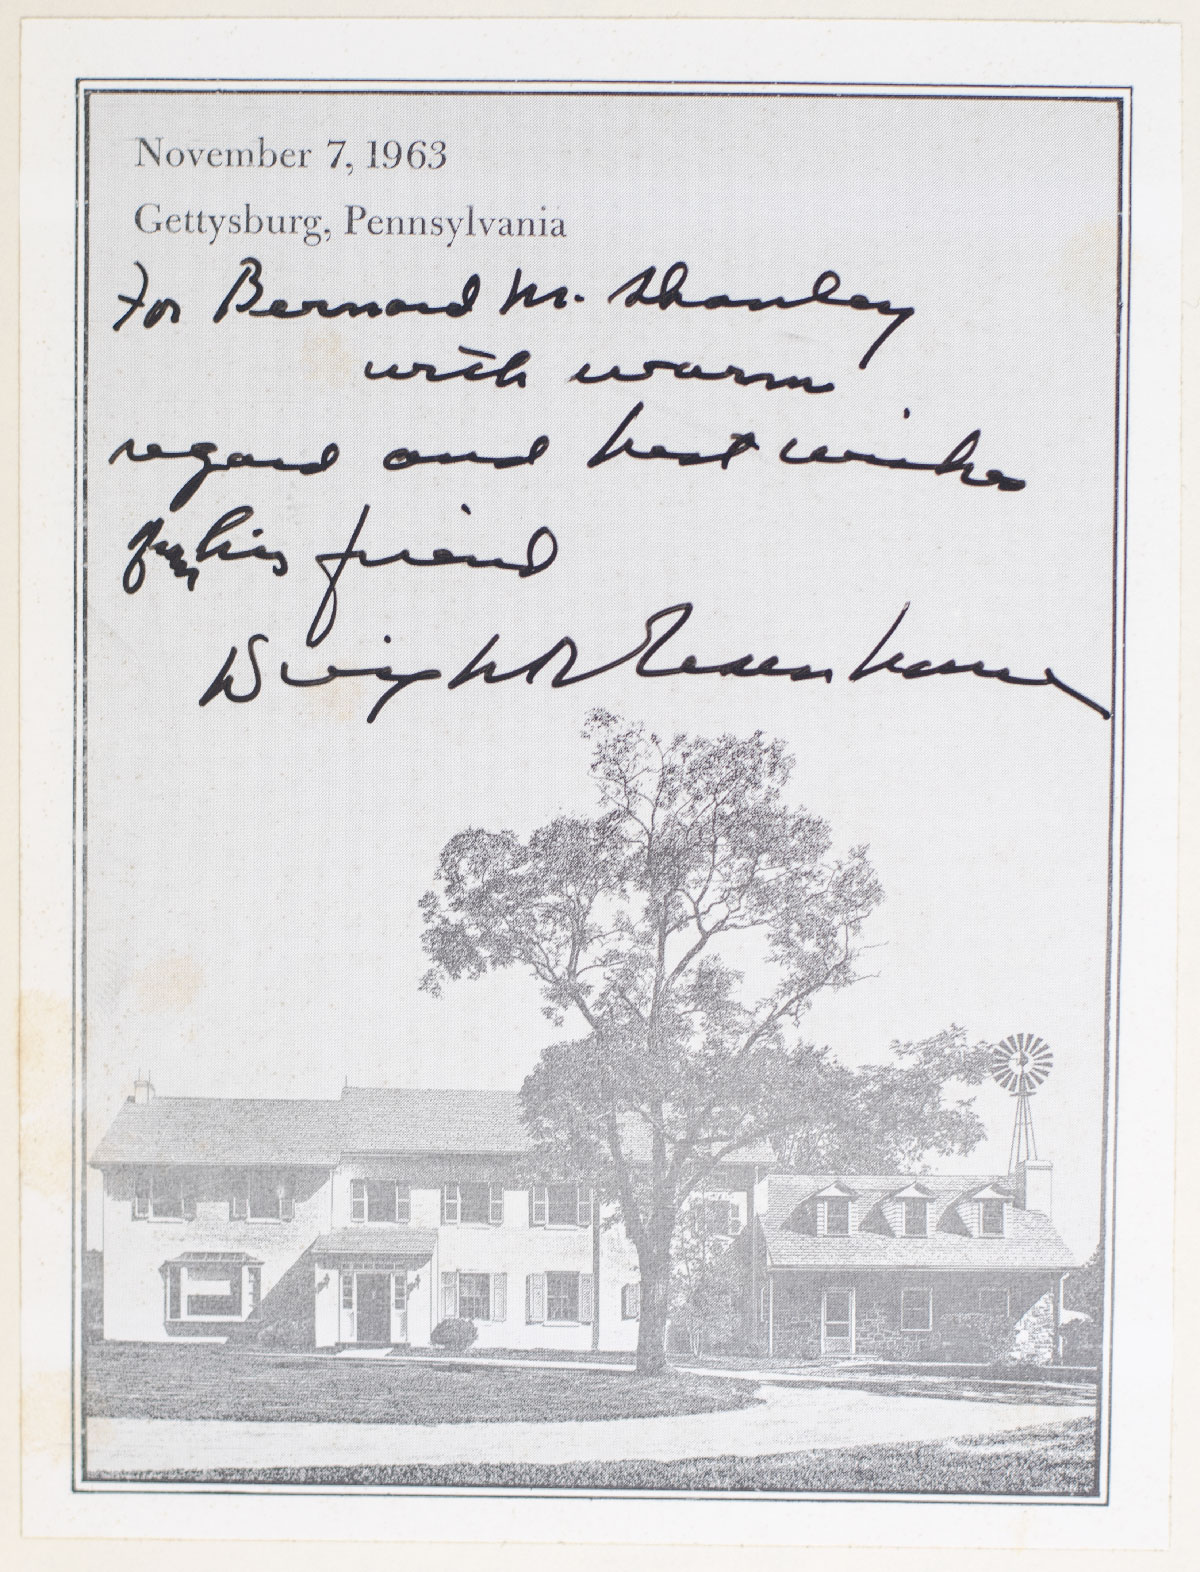 November 7, 1963
Gettysburg, Pennsylvania
For Bernard M. Shanley
with warm
regard and best wishes
from his friend
Dwight D Eisenhower